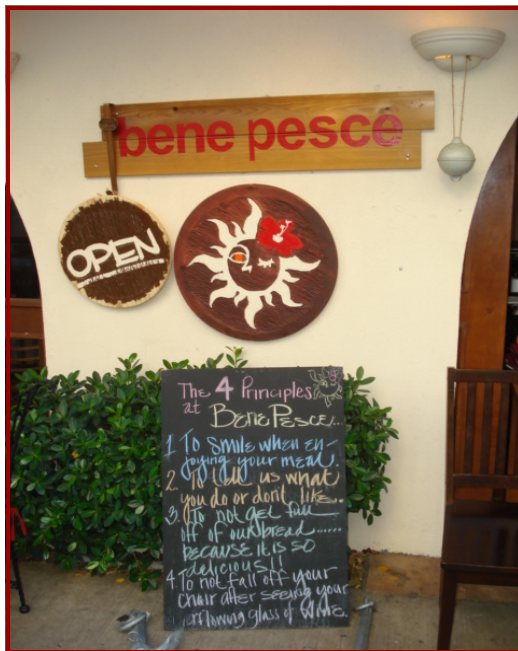 bene pesce
OPEN
The 4 Principles
at BENE PESCE...
1 To Smile when en-
joying your meal.
2. To tell us what
you do or dont like..
3. To not get full
off of our bread......
because it is so
delicious!!
4 To not fall off your
chair after seeing your
overflowing glass of wine.